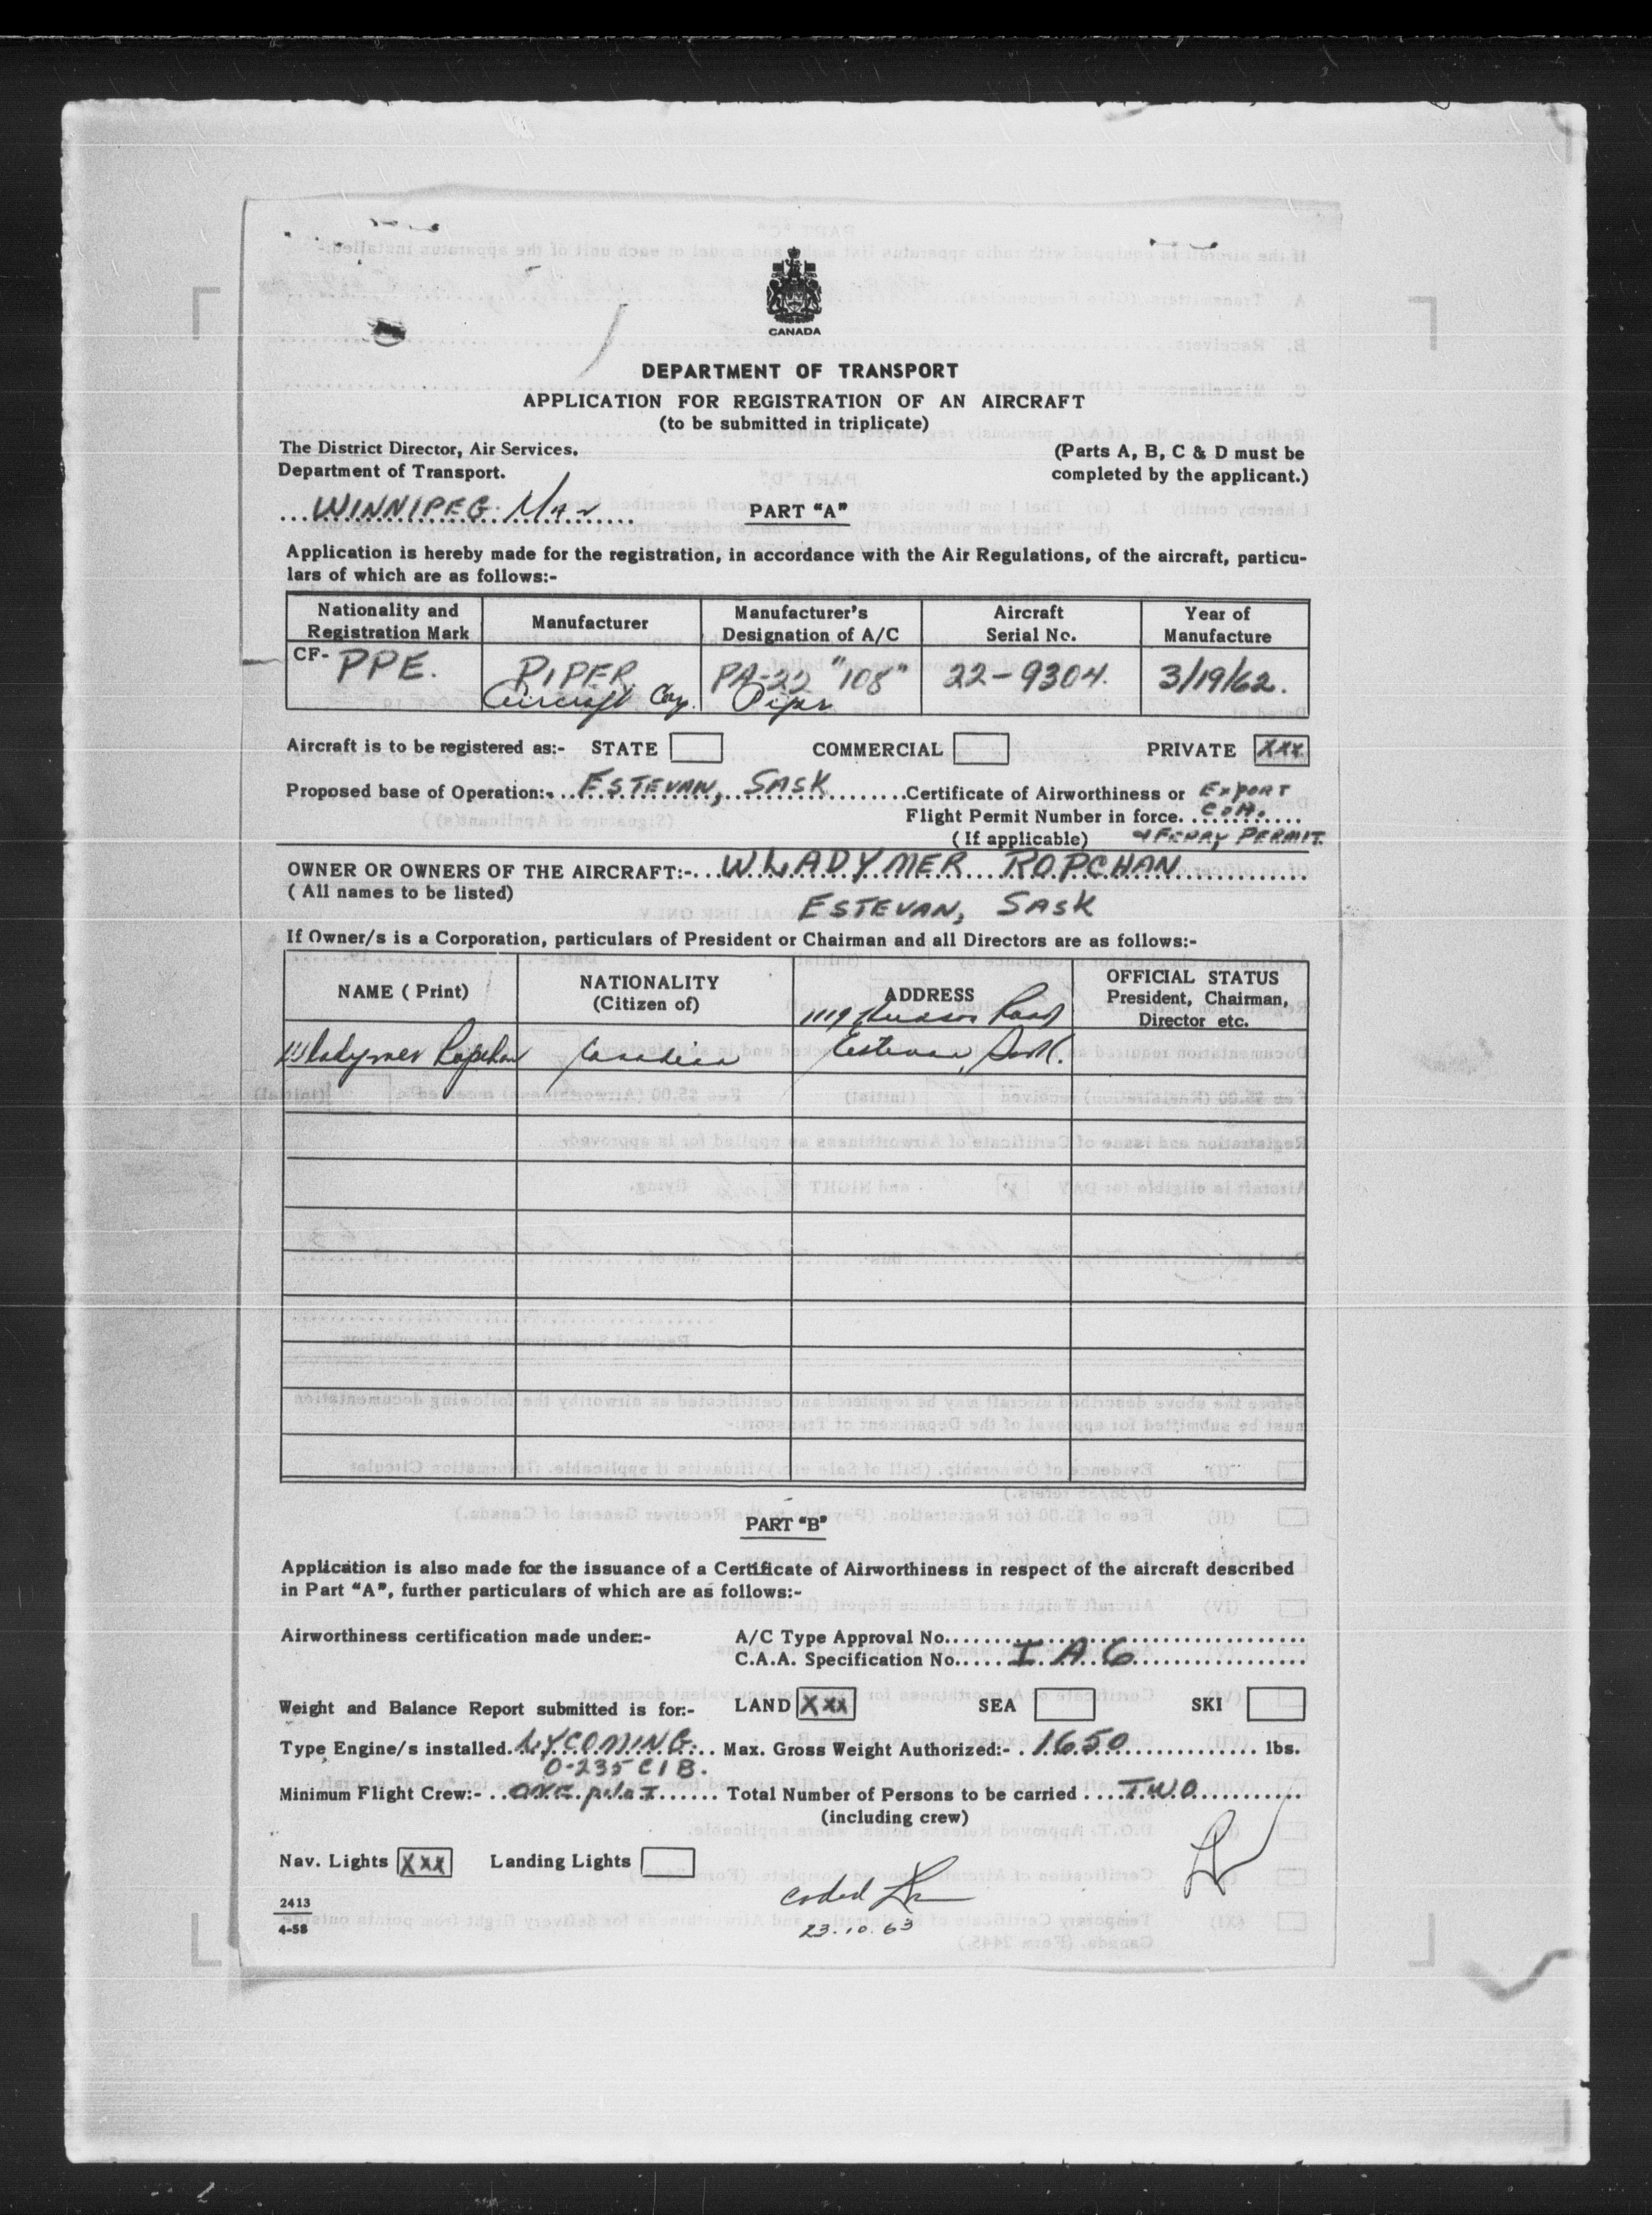 CANADA
DEPARTMENT OF TRANSPORT
APPLICATION FOR REGISTRATION OF AN AIRCRAFT
(to be submitted in triplicate)
The District Director, Air Services.
Department of Transport.
(Parts A, B, C & D must be
completed by the applicant.)
WINNIPEG Man
PART "A"
Application is hereby made for the registration, in accordance with the Air Regulations, of the aircraft, particu-
lars of which are as follows:-
Nationality and Registration Mark Manufacturer Manufacturer's Designation of A/C Aircraft Serial No. Year of Manufacture
CF- PPE. PIPER PA-22 "108" 22-9304. 3/19/62.
Aircraft Corp. Piper
Aircraft is to be registered as:- STATE COMMERCIAL PRIVATE XXX
Proposed base of Operation:- ESTEVAN, SASK Certificate of Airworthiness or EXPORT
Flight Permit Number in force. C of A.
(If applicable) + FERRY PERMIT.
OWNER OR OWNERS OF THE AIRCRAFT:- WLADYMER ROPCHAN
(All names to be listed) ESTEVAN, SASK
If Owner/s is a Corporation, particulars of President or Chairman and all Directors are as follows:-
NAME (Print) NATIONALITY (Citizen of) ADDRESS OFFICIAL STATUS President, Chairman, Director etc.
1119 Road
Wladymer Ropchan Canadian Estevan, Sask.
PART "B"
Application is also made for the issuance of a Certificate of Airworthiness in respect of the aircraft described
in Part "A", further particulars of which are as follows:-
Airworthiness certification made under:- A/C Type Approval No.
C.A.A. Specification No. I A 6
Weight and Balance Report submitted is for:- LAND XXX SEA SKI
Type Engine/s installed. LYCOMING Max. Gross Weight Authorized:- 1650 lbs.
O-235 C1B.
Minimum Flight Crew:- ONE pilot Total Number of Persons to be carried TWO
(including crew)
Nav. Lights XXX Landing Lights
coded
23.10.63
2413
4-58